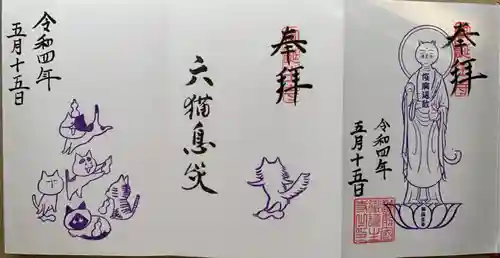 奉拝
六猫息災
令和四年
五月十五日
奉拝
令和四年
五月十五日